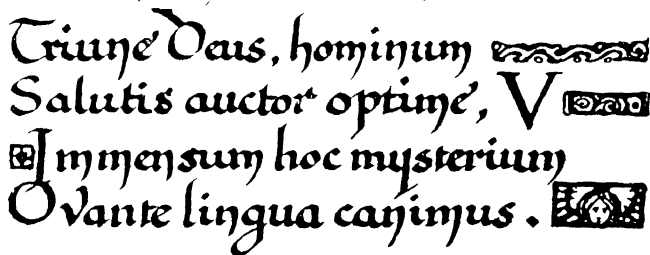 Triune Deus, hominum
Salutis auctor optime, V
Immensum hoc mysterium
Ovante lingua canimus.